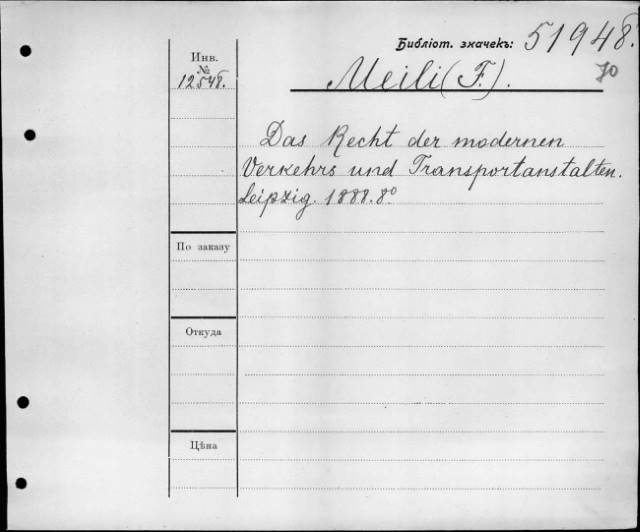 Библіот. значекъ: 51948.
Инв.
№
12548.
Meili (F.).
70
Das Recht der modernen
Verkehrs und Transportanstalten.
Leipzig. 1888. 8°
По заказу
Откуда
Цѣна